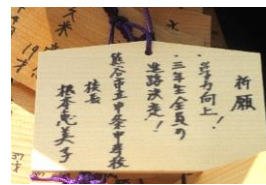 祈願
・学力向上!
・三年生全員の
進路決定!
熊谷市立中条中学校
校長
根本恵美子